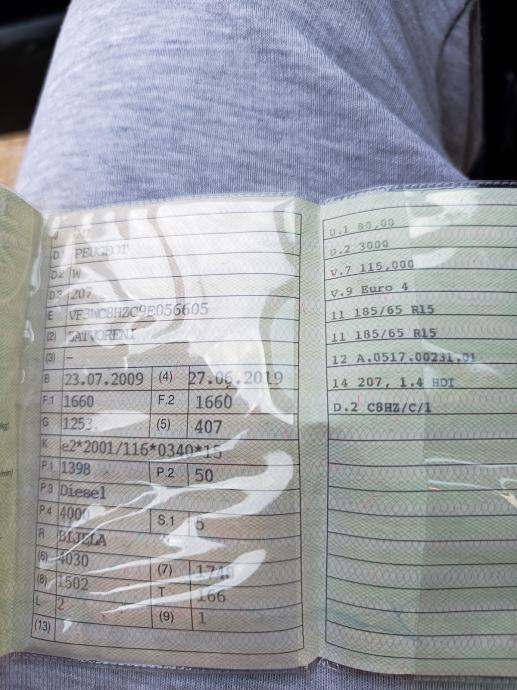 D.1 PEUGEOT
D.2 W
D.3 207
E VF3WC8HZC9E056605
(2) ZATVORENI
(3) –
B 23.07.2009 (4) 27.06.2019
F.1 1660 F.2 1660
G 1253 (5) 407
K e2*2001/116*0340*15
P.1 1398 P.2 50
P.3 Diesel
P.4 4000 S.1 5
R BIJELA
(6) 4030 (7) 1748
(8) 1502 T 166
L 2 (9) 1
(13)
U.1 80,00
U.2 3000
V.7 115,000
V.9 Euro 4
11 185/65 R15
11 185/65 R15
12 A.0517.00231.01
14 207, 1.4 HDI
D.2 C8HZ/C/1